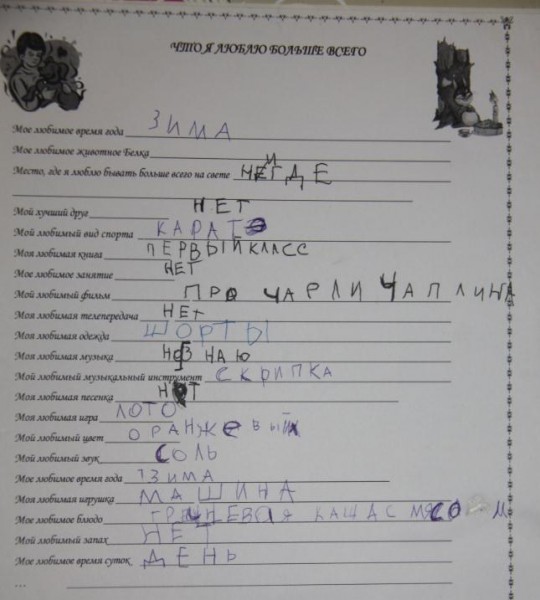 ЧТО Я ЛЮБЛЮ БОЛЬШЕ ВСЕГО
Мое любимое время года ЗИМА
Мое любимое животное Белка
Место, где я люблю бывать больше всего на свете НИГДЕ
Мой лучший друг НЕТ
Мой любимый вид спорта КАРАТЭ
Моя любимая книга ПЕРВЫЙ КЛАСС
Мое любимое занятие НЕТ
Мой любимый фильм ПРО ЧАРЛИ ЧАПЛИНА
Моя любимая телепередача НЕТ
Моя любимая одежда ШОРТЫ
Моя любимая музыка НЕ ЗНАЮ
Мой любимый музыкальный инструмент СКРИПКА
Моя любимая песенка НЕТ
Моя любимая игра ЛОТО
Мой любимый цвет ОРАНЖЕВЫЙ
Мой любимый звук СОЛЬ
Мое любимое время года ЗИМА
Моя любимая игрушка МАШИНА
Мое любимое блюдо ГРИЧНЕВАЯ КАША С МЯСОМ
Мой любимый запах НЕТ
Мое любимое время суток ДЕНЬ
...